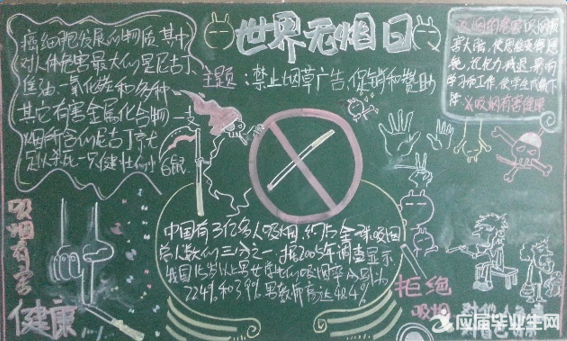 世界无烟日
主题：禁止烟草广告、促销和赞助
癌细胞发展的物质，其中
对人体危害最大的是尼古丁、
焦油、一氧化碳和多种
其它有害金属化合物。一支
烟所含的尼古丁就
足以杀死一只健壮的小
白鼠
吸烟的危害
害大脑，使思维变得迟
钝，记忆力减退，影响
学习和工作，使学生成绩下
降。
吸烟有害健康
中国有3亿多人吸烟，约占全球吸烟
总人数的三分之一。据2005年调查显示
我国15岁以上男女
72.4%和
男教师高达
吸烟有害
健康
拒绝
吸烟
应届毕业生网